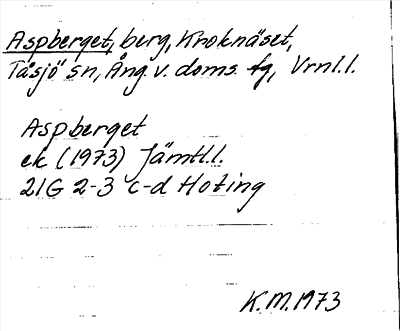 Aspberget, berg, Kroknäset,
Tåsjö sn, Ång. v. doms. fg, Vrnl.l.
Aspberget
ek (1973) Jämtl.l.
21G 2-3 c-d Hoting
K.M. 1973